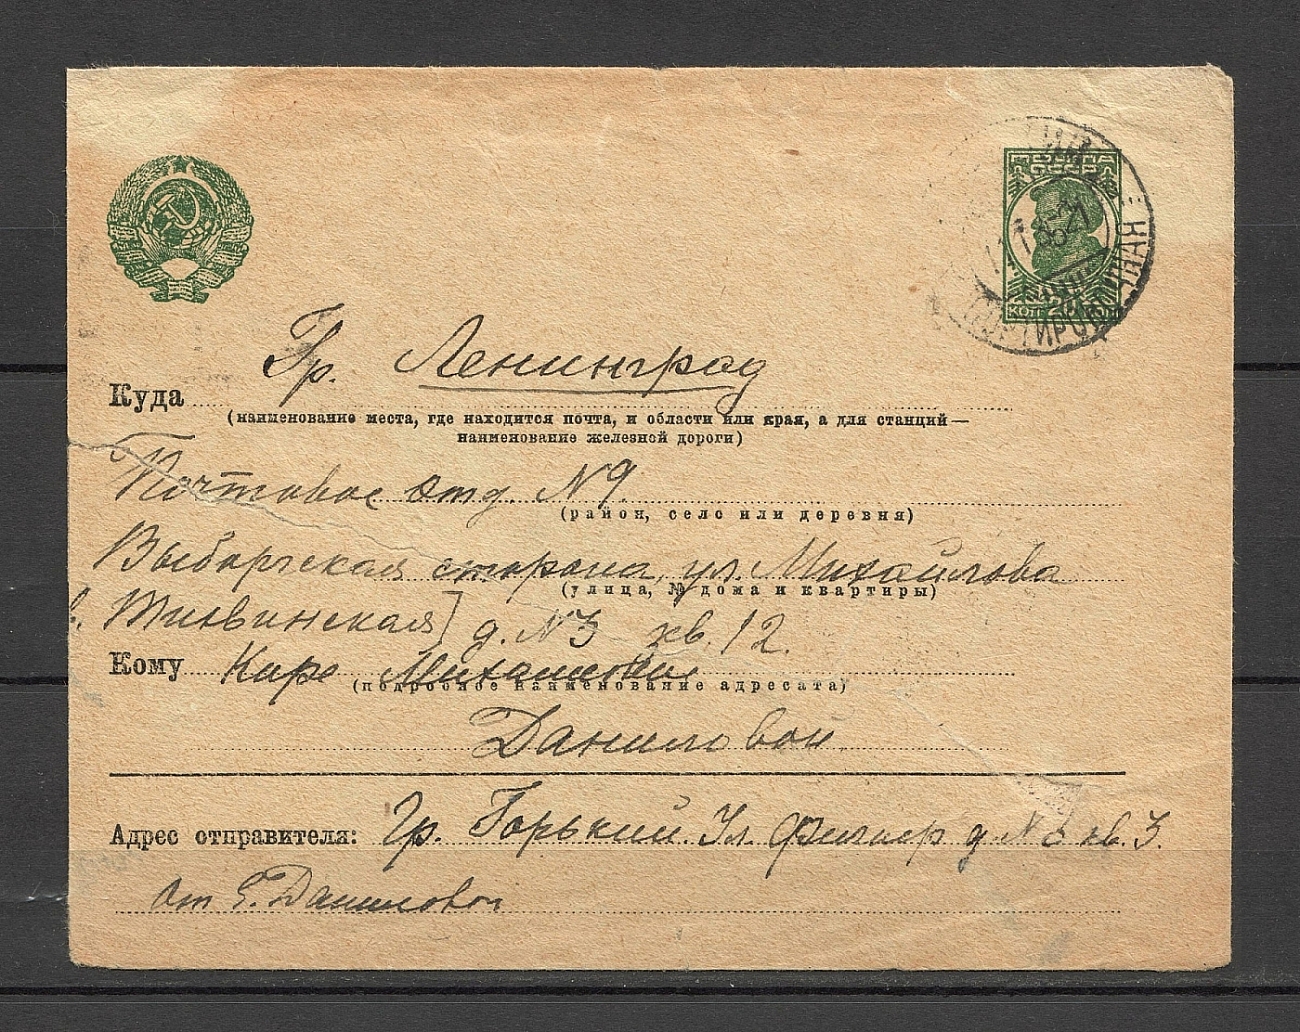 ПОЧТА
СССР
КОП 20 КОП
Гр. Ленинград
Куда
(наименование места, где находится почта, и области или края, а для станций—
наименование железной дороги)
Почтовое отд. N 9.
(район, село или деревня)
Выборгская сторона, ул. Михайлова
(улица, № дома и квартиры)
Тихвинская] д. N3 кв. 12.
Кому Кире Михайловне
(подробное наименование адресата)
Даниловой
Адрес отправителя: Гр. Горький. Ул. Фигнер д. N 8 кв. 3.
от Е. Даниловой